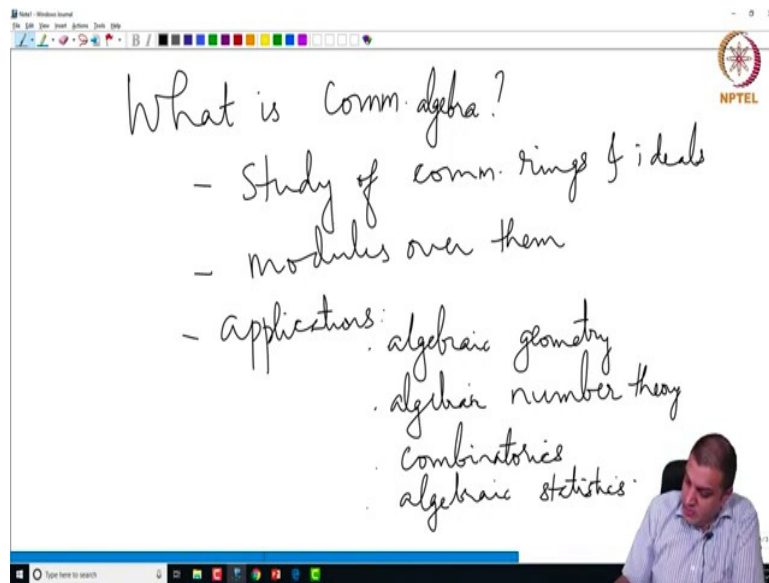 Note1 - Windows Journal
File Edit View Insert Actions Tools Help
NPTEL
What is Comm. algebra?
- Study of comm. rings & ideals
- modules over them
- applications:
. algebraic geometry
. algebraic number theory
. combinatorics
. algebraic statistics.
Type here to search